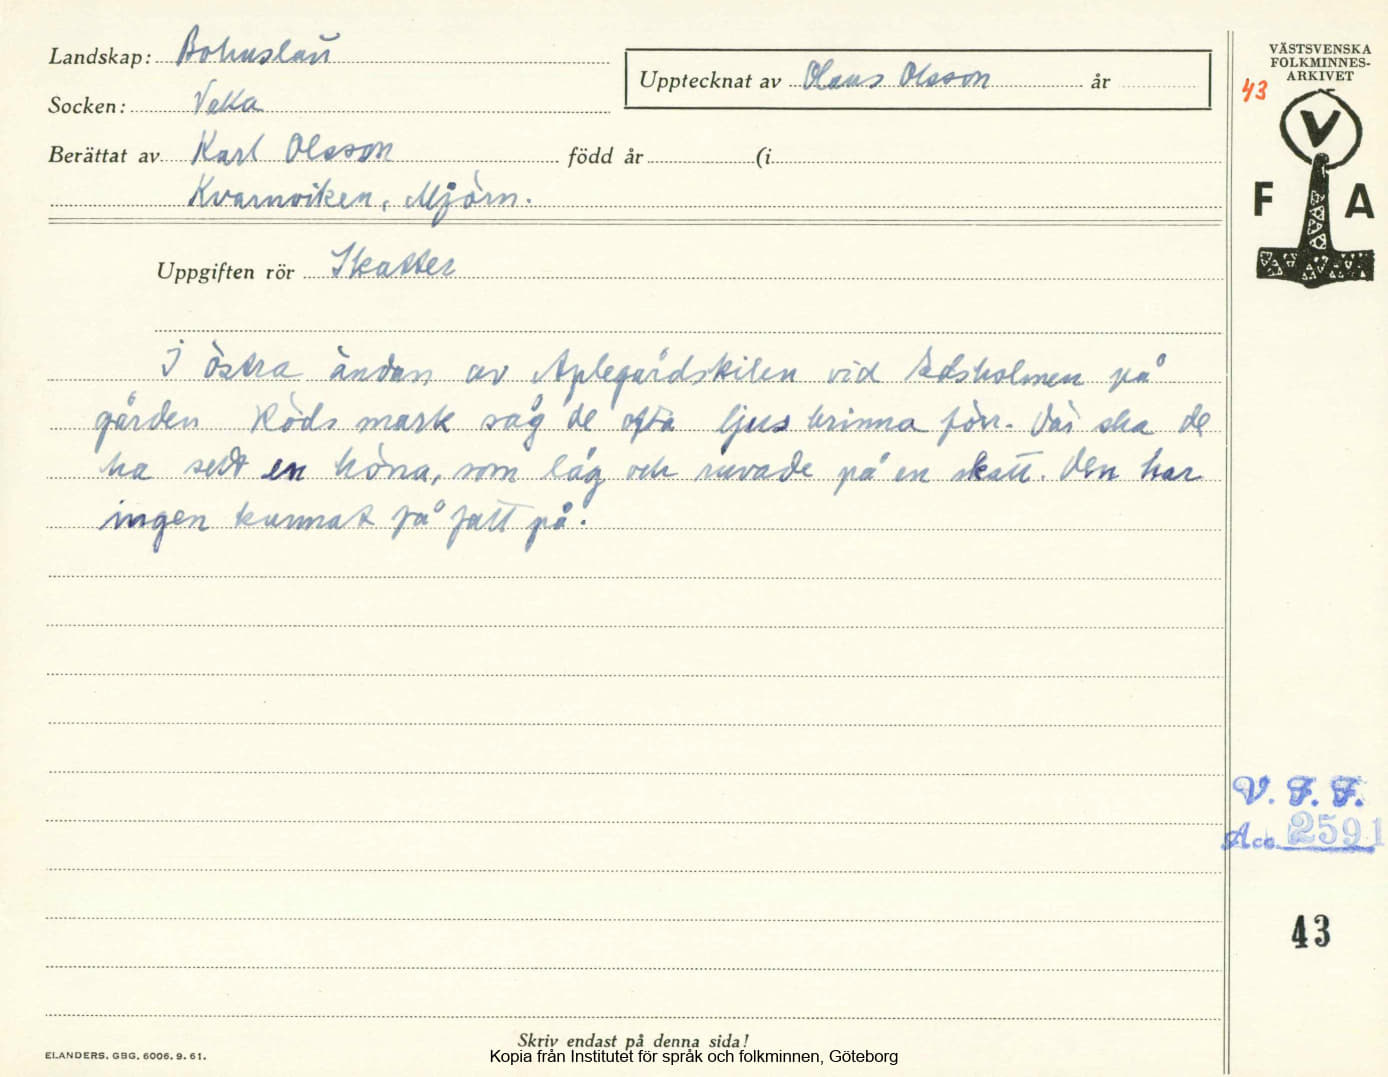 Landskap: Bohuslän
Socken: Veka
Berättat av Karl Olsson född år (i
Kvarnviken, Mjörn.
Upptecknat av Olaus Olsson år
VÄSTSVENSKA
FOLKMINNES-
ARKIVET
43
V
F A
Uppgiften rör Skatter
I östra ändan av Aplegårdskilen vid Edsholmen på
gården Röds mark såg de ofta ljus brinna förr. Där ska de
ha sett en höna, som låg och ruvade på en skatt. Den har
ingen kunnat få fatt på.
V. F. F.
Acc. 2591
43
Skriv endast på denna sida!
ELANDERS, GBG, 6006. 9. 61.
Kopia från Institutet för språk och folkminnen, Göteborg